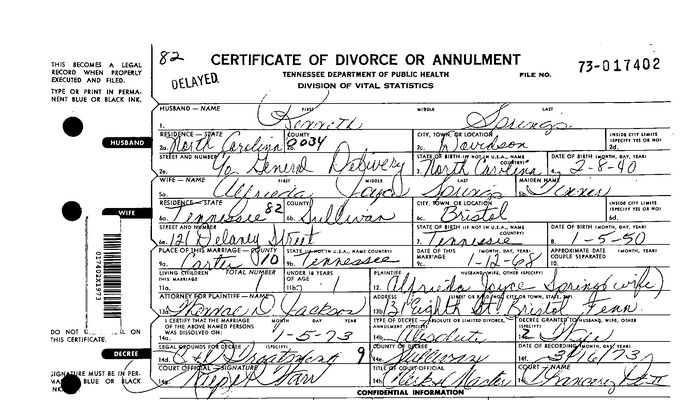 82
CERTIFICATE OF DIVORCE OR ANNULMENT
DELAYED
TENNESSEE DEPARTMENT OF PUBLIC HEALTH
DIVISION OF VITAL STATISTICS
FILE NO.
73-017402
THIS BECOMES A LEGAL
RECORD WHEN PROPERLY
EXECUTED AND FILED.
TYPE OR PRINT IN PERMA-
NENT BLUE OR BLACK
INK.
HUSBAND — NAME FIRST MIDDLE LAST
1. Kenneth Springs
HUSBAND
RESIDENCE — STATE COUNTY CITY, TOWN, OR LOCATION INSIDE CITY LIMITS
(SPECIFY YES OR NO)
2a. North Carolina 8034 2c. Davidson 2d.
STREET AND NUMBER STATE OF BIRTH (IF NOT IN U.S.A., NAME COUNTRY) DATE OF BIRTH (MONTH, DAY, YEAR)
General Delivery North Carolina 2-8-40
WIFE — NAME FIRST MIDDLE LAST MAIDEN NAME
5a. Alfrieda Joyce Springs 5b.
WIFE
RESIDENCE — STATE COUNTY CITY, TOWN, OR LOCATION INSIDE CITY LIMITS
(SPECIFY YES OR NO)
6a. Tennessee 82 6b. Sullivan 6c. Bristol 6d.
STREET AND NUMBER STATE OF BIRTH (IF NOT IN U.S.A., NAME COUNTRY) DATE OF BIRTH (MONTH, DAY, YEAR)
6e. 121 Delaney Street 7. Tennessee 8. 1-5-50
PLACE OF THIS MARRIAGE — COUNTY STATE (IF NOT IN U.S.A., NAME COUNTRY) DATE OF THIS MARRIAGE (MONTH, DAY, YEAR) APPROXIMATE DATE COUPLE SEPARATED (MONTH, YEAR)
9a. Carter 10 9b. Tennessee 9c. 1-12-68 10.
LIVING CHILDREN OF THIS MARRIAGE TOTAL NUMBER UNDER 18 YEARS OF AGE PLAINTIFF HUSBAND, WIFE, OTHER (SPECIFY)
11a. 1 11b. 1 12. Alfrieda Joyce Springs (wife)
ATTORNEY FOR PLAINTIFF — NAME ADDRESS
13a. Thomas D. Jackson 13b. Eighth St. Bristol Tenn.
I CERTIFY THAT THE MARRIAGE OF THE ABOVE NAMED PERSONS WAS DISSOLVED ON: MONTH DAY YEAR
1-5-73 Absolute Wife
DECREE
LEGAL GROUNDS FOR DECREE (SPECIFY) COUNTY OF DECREE DATE OF RECORDING (MONTH, DAY, YEAR)
14d. C & I Treatment 9 Sullivan 3/16/73
COURT OFFICIAL — SIGNATURE TITLE OF COURT OFFICIAL COURT — NAME
Clerk & Master
CONFIDENTIAL INFORMATION
017402X1973
THIS CERTIFICATE.
SIGNATURE MUST BE IN PER-
BLUE OR BLACK
INK.